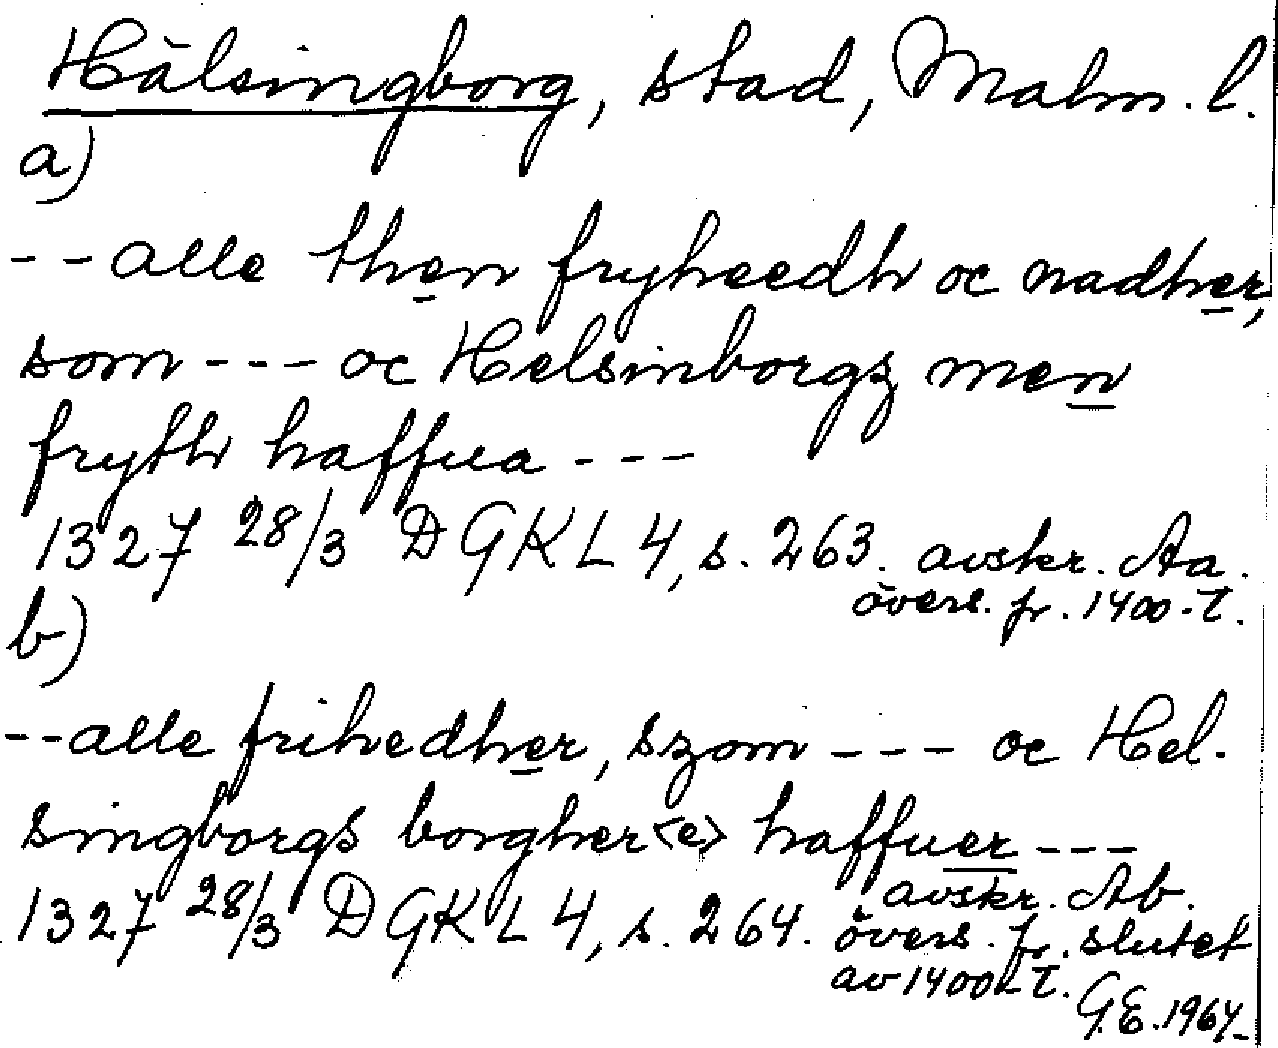 Hälsingborg, stad, Malm. l.
a)
-- alle then fryheedh oc nadher,
som --- oc Helsinborgz men
fryth haffua ---
1327 28/3 DGKL 4, s. 263. avskr. Aa.
övers. fr. 1400-t.
b)
-- alle frihedher, szom --- oc Hel-
singborgs borgher<e> haffuer ---
1327 28/3 DGKL 4, s. 264. avskr. Ab.
övers. fr. slutet
av 1400-t.
G.E. 1964